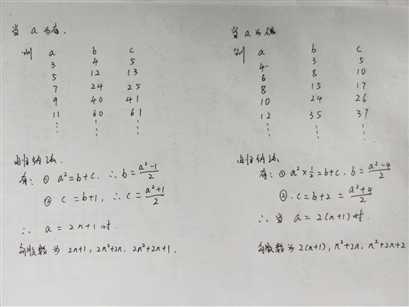 当 a 为奇.
则 a b c
3 4 5
5 12 13
7 24 25
9 40 41
11 60 61
⋮ ⋮ ⋮
由归纳法.
有: ① a²=b+c. ∴ b=(a²-1)/2
② c=b+1, ∴ c=(a²+1)/2
∴ a=2n+1时.
勾股数为 2n+1, 2n²+2n, 2n²+2n+1.
当 a 为偶
则 a b c
4 3 5
6 8 10
8 15 17
10 24 26
12 35 37
⋮ ⋮ ⋮
由归纳法.
有: ① a²×1/2=b+c. b=(a²-4)/2
②. c=b+2=(a²+4)/2
∴ 当 a=2(n+1)时.
勾股数为 2(n+1), n²+2n, n²+2n+2